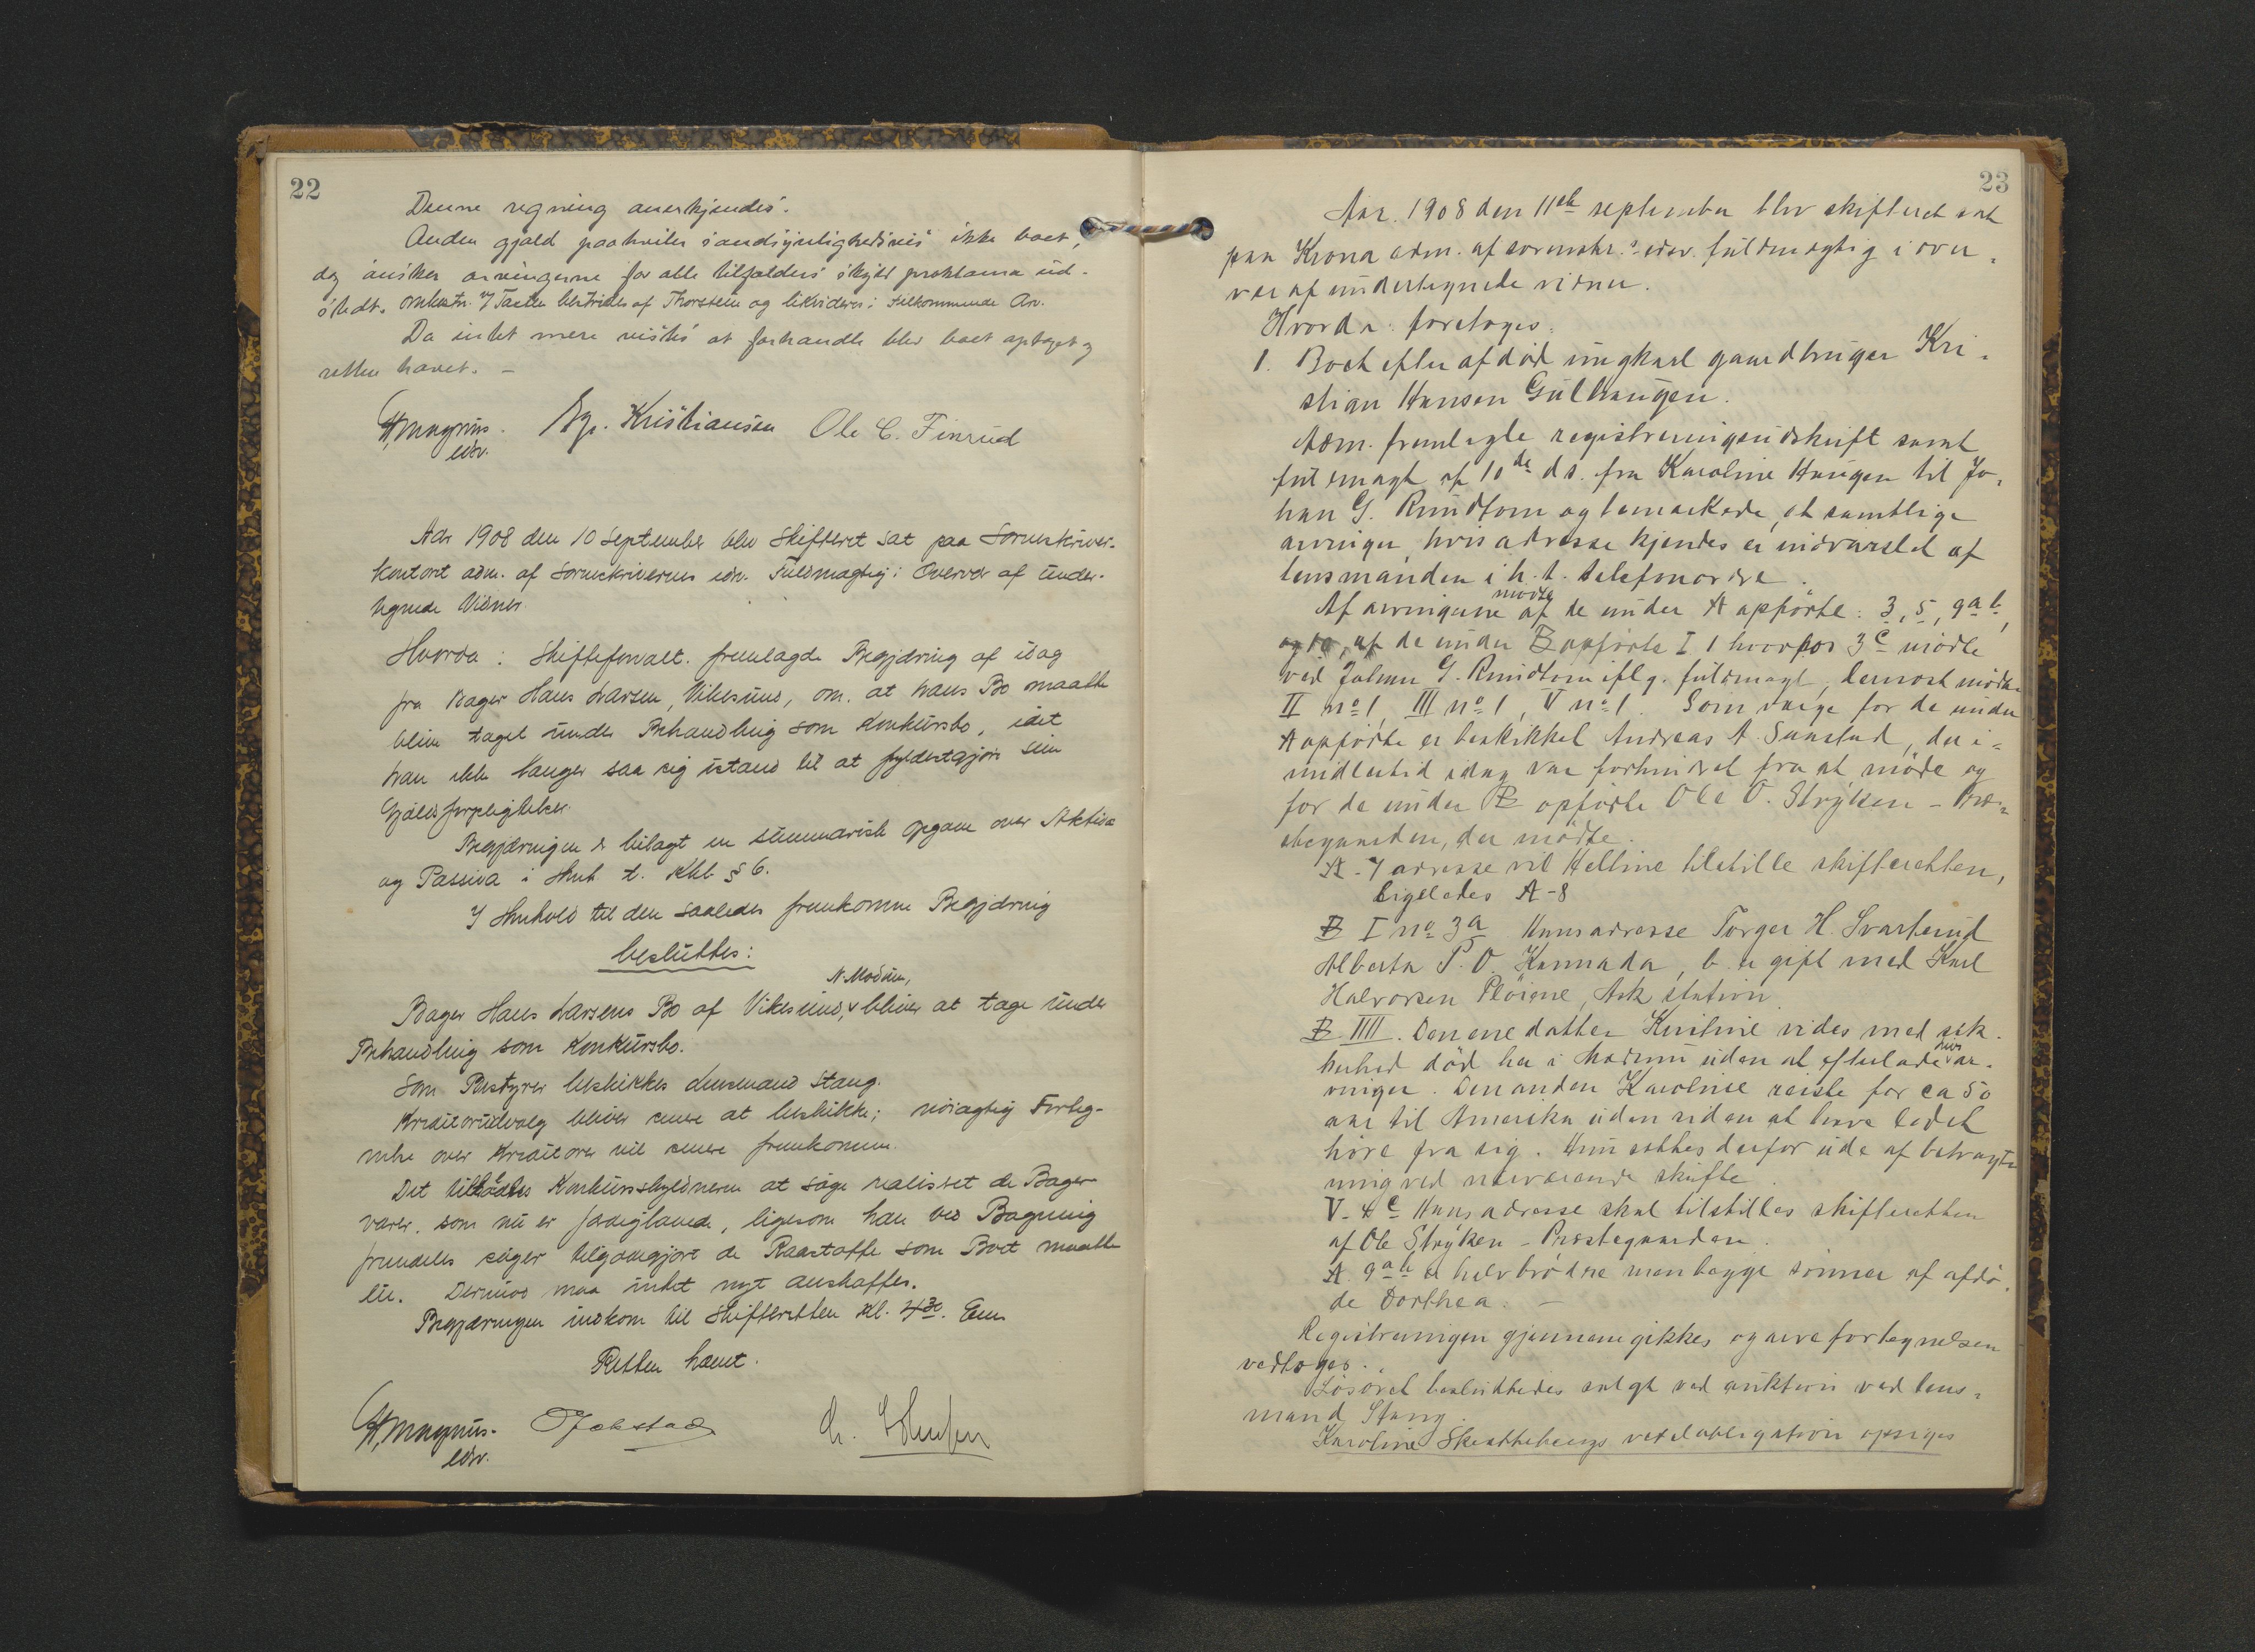 22
Denne regning anerkjendes.
Anden gjæld paahviler sandsynligheds​vis ikke boet,
dog ønsker arvingerne for alle tilfælders skyld proklama ud-
stedt. Omkostn. bestrides af Thorstein og likvideres i tilkommende Arv.
Da intet mere vistes at forhandle blev boet optaget og
retten hævet. —
H. Magnus. Kristiansen Ole C. Finrud
edsv.
Aar 1908 den 10 September blev Skifteret sat paa Sorenskriver-
kontoret adm. af Sorenskriverens edsv. Fuldmægtig i Overvær af under-
tegnede Vidner.
Hvorda: Skifteforvalt. fremlagde Begjæring af idag
fra Bager Hans Larsen, Vikesund, om. at hans Bo maatte
blive taget under Behandling som Konkursbo, idet
han ikke længer saa sig istand til at fyldestgjøre sine
Gjældsforpligtelser.
Begjæringen er bilagt en summarisk Opgave over Aktiva
og Passiva i Henh. t. Kkl. § 6.
I Henhold til den saaledes fremkomne Begjæring
besluttes:
N. Modum,
Bager Hans Larsens Bo af Vikesund, bliver at tage under
Behandling som Konkursbo.
Som Bestyrer beskikkes Lensmand Stang.
Kreditorudvalg bliver senere at beskikke; nøiagtig Forteg-
nelse over Kreditorer vil senere fremkomme.
Det tillades Konkursskyldneren at søge realisert de Bager-
varer, som nu er færdiglavede, ligesom han ved Bagning
fremdeles søger tilgodegjort de Raastoffe som Boet maatte
eie. Derimod maa intet nyt anskaffes.
Begjæringen indkom til Skifteretten kl. 4 30. Em.
Retten hævet.
H. Magnus. O Jelstad
edsv.
23
Aar. 1908 den 11te september blev skifteret sat
paa Krona adm. af sorenskr.s edsv. fuldmægtig i over-
vær af undertegnede vidner.
Hvorda: foretoges:
1. Boet efter afdød ungkarl gaardbruger Kri-
stian Hansen Gulhaugen.
Adm. fremlagte registreringsudskrift samt
fuldmagt af 10de ds. fra Karoline Haugen til Jo-
han G. Rundtom og bemærkede, at samtlige
arvinger, hvis adresse kjendes er indvarslet af
lensmanden i h. t. telefonordre.
mødte
Af arvingerne af de under A opførte: 3, 5, 9 a b,
og 10, af de under B opførte I 1 hvorhos 3 c mødte
ved Johan G. Rundtom iflg. fuldmagt, dernæst mødte
II no 1, III no 1, V no 1. Som værge for de under
A opførte er beskikket Andreas A. Sunstad, der i-
midlertid idag var forhindret fra at møde og
for de under B opførte Ole O. Stryken - Præ-
stegaarden, der mødte.
A - 7 adresse vil Helline tilstille skifteretten,
ligeledes A - 8
B I no 3 a Hans adresse Torger H. Svarterud
Alberta P. O. Kannada, b er gift med Karl
Halvorsen Pløiene, Ask station.
B IIII. Den ene datter Kristine vides med sik-
kerhed død her i Modum uden at efterlade livsar-
vinger. Den anden Karoline reiste for ca 50
aar til Amerika uden siden at have ladet
høre fra sig. Hun sættes derfor ude af betragt-
ning ved nærværende skifte.
V - 4 c Hans adresse skal tilstilles skifteretten
af Ole Stryken - Præstegaarden.
A. 9 a b er halvbrødre men begge sønner af afdø-
de Dorthea. —
Registreringen gjennemgikkes og arvefortegnelsen
vedtoges.
Løsøret besluttedes solgt ved auktion ved lens-
mand Stang.
Karoline Skrattebergs vexelobligation opsiges